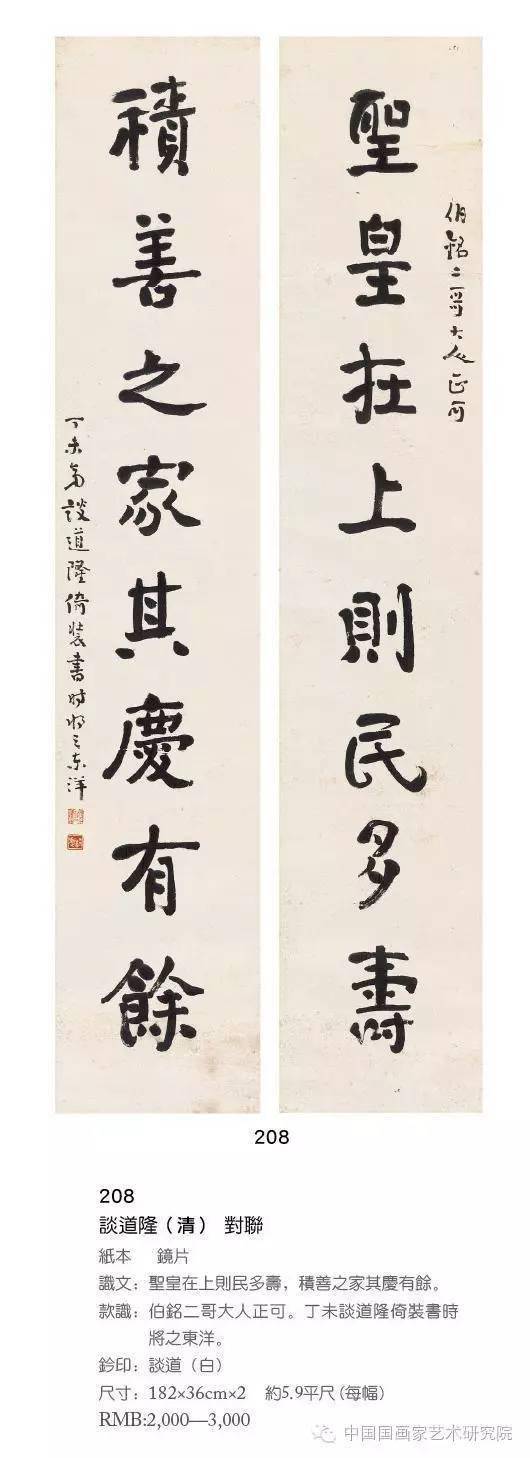 聖皇在上則民多壽
伯銘二哥大人正可
積善之家其慶有餘
丁未夏談道隆倚裝書時將之東洋
208
208
談道隆（清） 對聯
紙本 鏡片
識文：聖皇在上則民多壽，積善之家其慶有餘。
款識：伯銘二哥大人正可。丁未談道隆倚裝書時
將之東洋。
鈐印：談道（白）
尺寸：182×36cm×2 約5.9平尺(每幅)
RMB:2,000—3,000
中国国画家艺术研究院